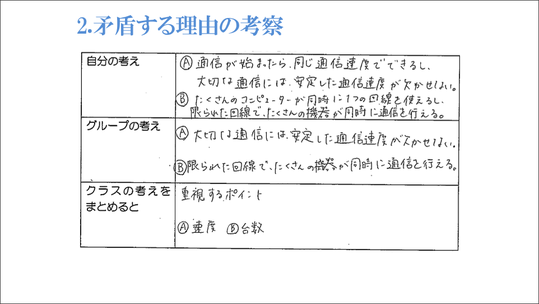 2.矛盾する理由の考察
自分の考え
Ⓐ通信が始まったら、同じ通信速度でできるし、
大切な通信には、安定した通信速度が欠かせない。
Ⓑたくさんのコンピューターが同時に1つの回線を使えるし、
限られた回線で、たくさんの機器が同時に通信を行える。
グループの考え
Ⓐ大切な通信には、安定した通信速度が欠かせない。
Ⓑ限られた回線で、たくさんの機器が同時に通信を行える。
クラスの考えを
まとめると
重視するポイント
Ⓐ速度 Ⓑ台数